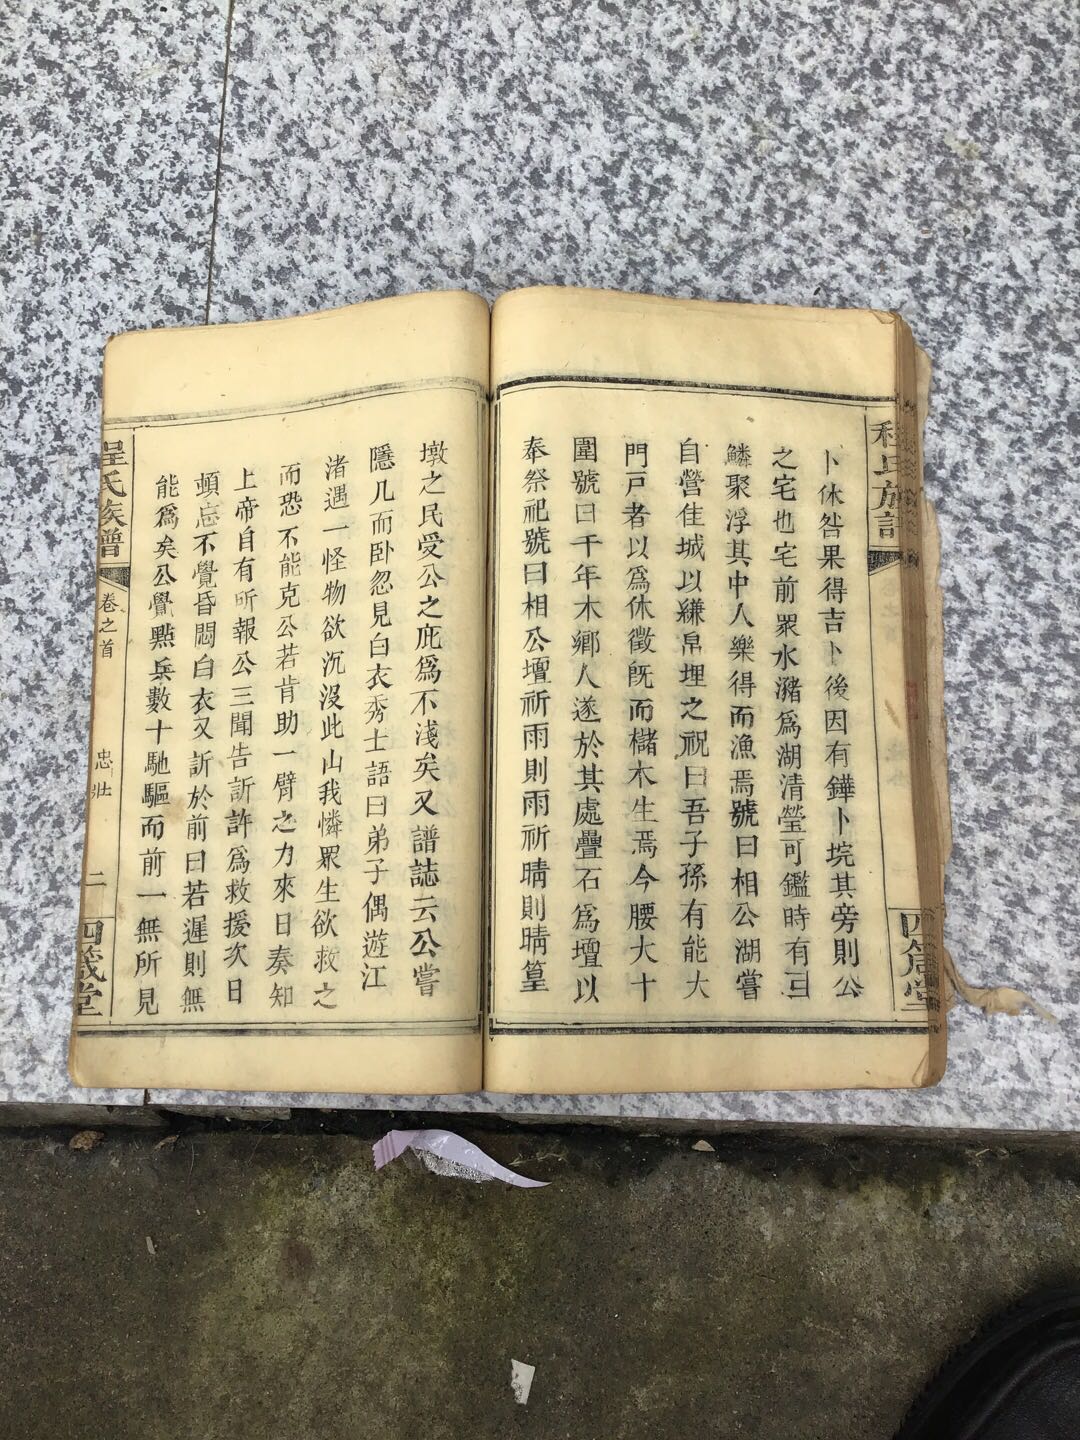 卜休咎果得吉卜後因有鏵卜垸其旁則公
之宅也宅前眾水瀦為湖清瑩可鑑時有三
鱗聚浮其中人樂得而漁焉號曰相公湖嘗
自營佳城以縑帛埋之祝曰吾子孫有能大
門戶者以爲休徵旣而櫧木生焉今腰大十
圍號曰千年木鄉人遂於其處疊石爲壇以
奉祭祀號曰相公壇祈雨則雨祈晴則晴篁
墩之民受公之庇爲不淺矣又譜誌云公嘗
隱几而臥忽見白衣秀士語曰弟子偶遊江
渚遇一怪物欲沉沒此山我憐眾生欲救之
而恐不能克公若肯助一臂之力來日奏知
上帝自有所報公三聞告訴許爲救援次日
頓忘不覺昏悶白衣又訴於前曰若遲則無
能爲矣公覺點兵數十馳驅而前一無所見
程氏族譜
卷之首
忠壯
二
四箴堂